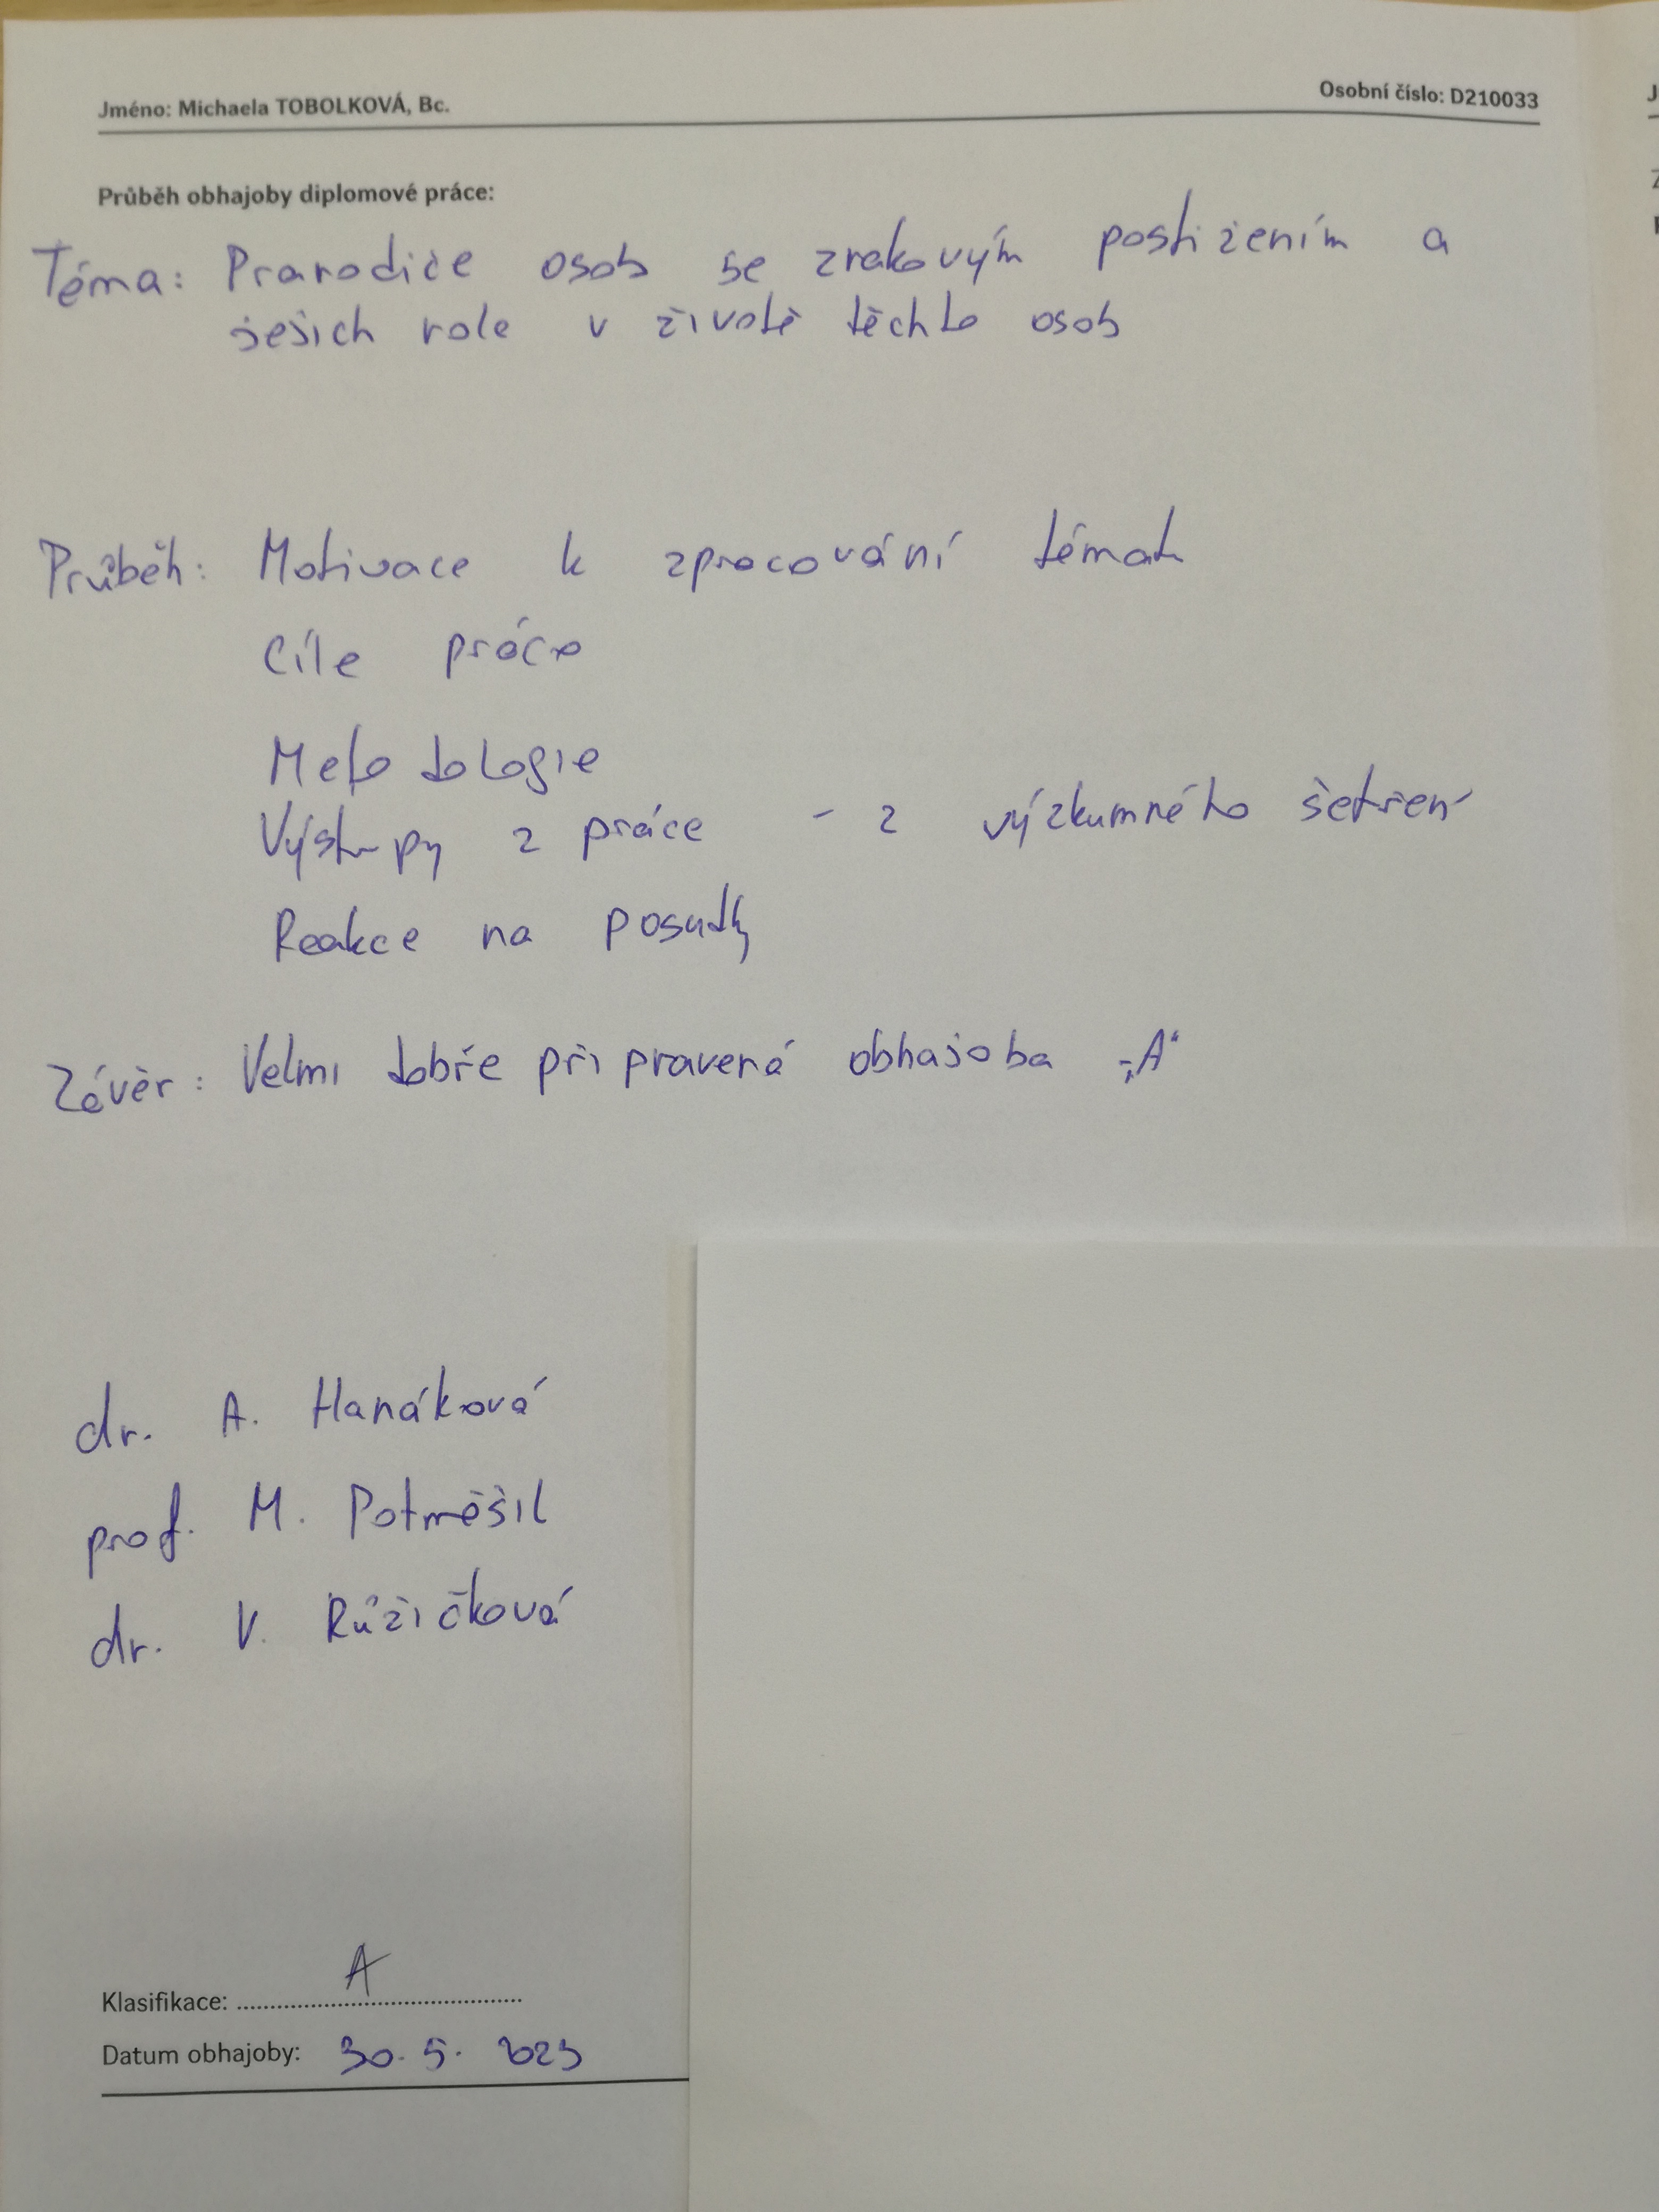 Jméno: Michaela TOBOLKOVÁ, Bc.
Osobní číslo: D210033
Průběh obhajoby diplomové práce:
Téma: Prarodiče osob se zrakovým postižením a
jejich role v životě těchto osob
Průběh: Motivace k zpracování tématu
Cíle práce
Metodologie
Výstupy z práce - z výzkumného šetření
Reakce na posudky
Závěr: Velmi dobře připravená obhajoba „A“
dr. A. Hanáková
prof. M. Potměšil
dr. V. Růžičková
Klasifikace: A
Datum obhajoby: 30. 5. 2023